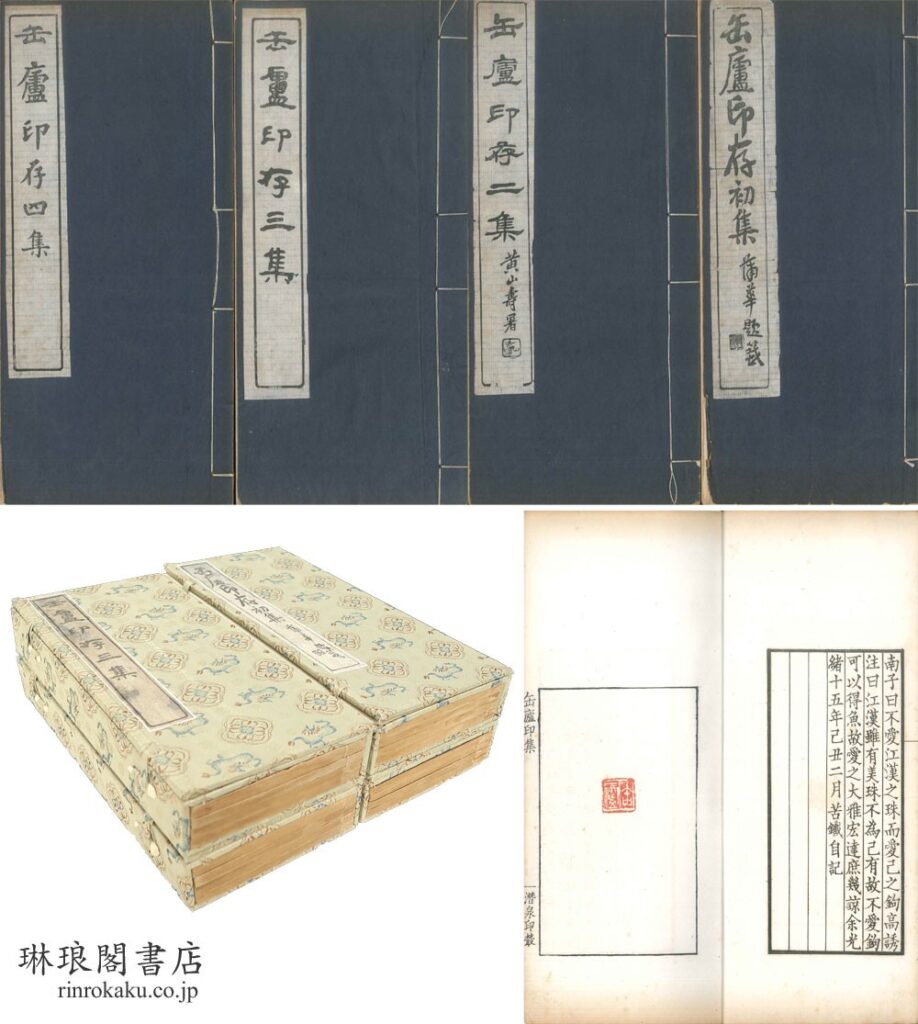 缶廬印存初集
蒲華題籤
缶廬印存二集
黃山壽署
缶盧印存三集
缶廬印存四集
缶廬印存初集
缶盧印存三集
南子曰不愛江漢之珠而愛己之鉤高誘
注曰江漢雖有美珠不為己有故不愛鉤
可以得魚故愛之大雅宏達庶幾諒余光
緒十五年己丑二月苦鐵自記
缶廬
缶廬印集
潛泉印叢
琳琅閣書店
rinrokaku.co.jp